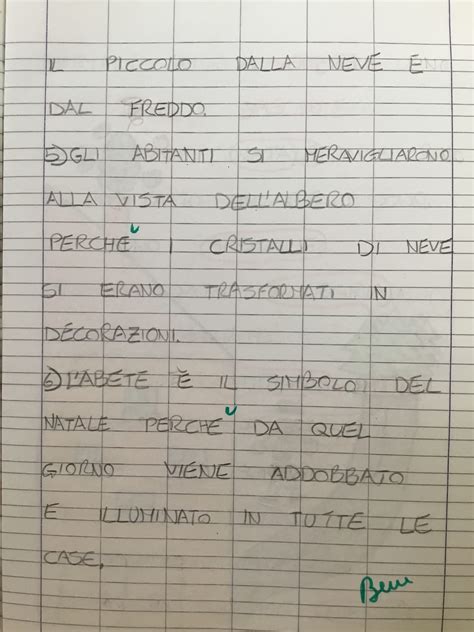 IL PICCOLO DALLA NEVE E
DAL FREDDO.
5) GLI ABITANTI SI MERAVIGLIARONO
ALLA VISTA DELL'ALBERO
PERCHÉ I CRISTALLI DI NEVE
SI ERANO TRASFORMATI IN
DECORAZIONI.
6) L'ABETE È IL SIMBOLO DEL
NATALE PERCHÉ DA QUEL
GIORNO VIENE ADDOBBATO
E ILLUMINATO IN TUTTE LE
CASE.
Bene